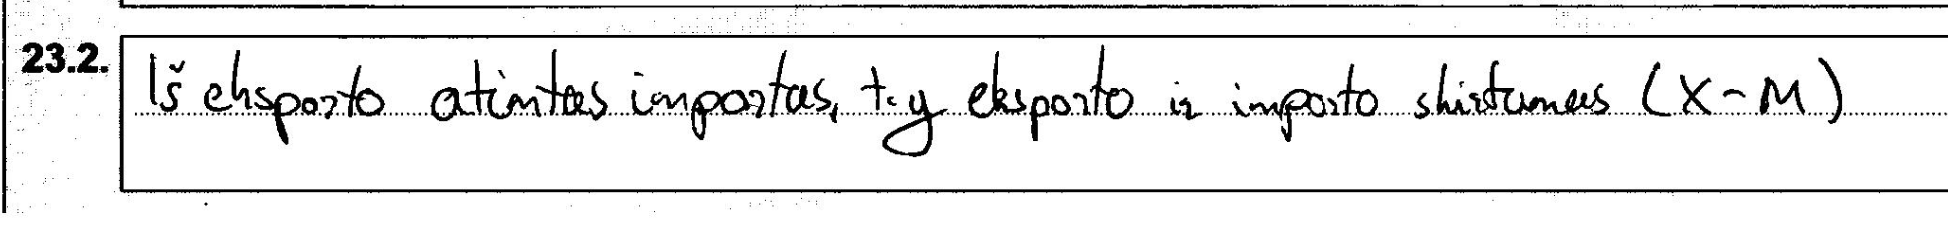 23.2. Iš eksporto atimtas importas, t.y eksporto ir importo skirtumas (X-M)